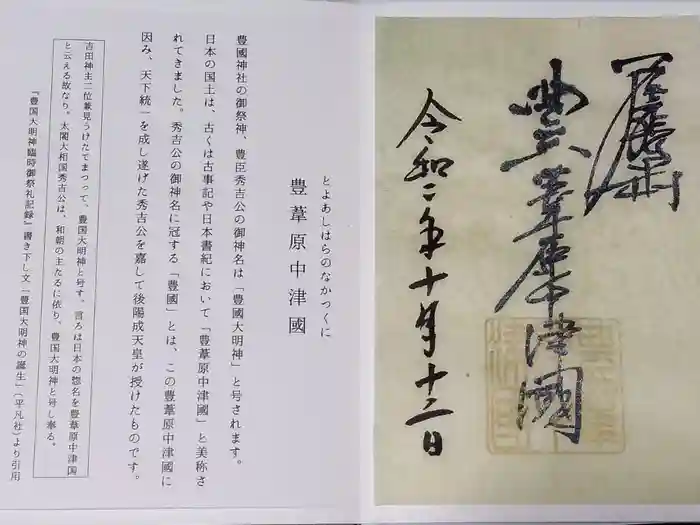 豊葦原中津國
令和二年十月十二日
とよあしはらのなかつくに
豊葦原中津國
豊國神社の御祭神、豊臣秀吉公の御神名は「豊國大明神」と号されます。
日本の国土は、古くは古事記や日本書紀において「豊葦原中津國」と美称さ
れてきました。秀吉公の御神名に冠する「豊國」とは、この豊葦原中津國に
因み、天下統一を成し遂げた秀吉公を嘉して後陽成天皇が授けたものです。
吉田神主二位兼見うけたてまつって、豊国大明神と号す。言ろは日本の惣名を豊葦原中津国
と云える故なり。太閤大相国秀吉公は、和朝の主たるに依り、豊国大明神と号し奉る。
『豊国大明神臨時御祭礼記録』書き下し文「豊国大明神の誕生」(平凡社)より引用